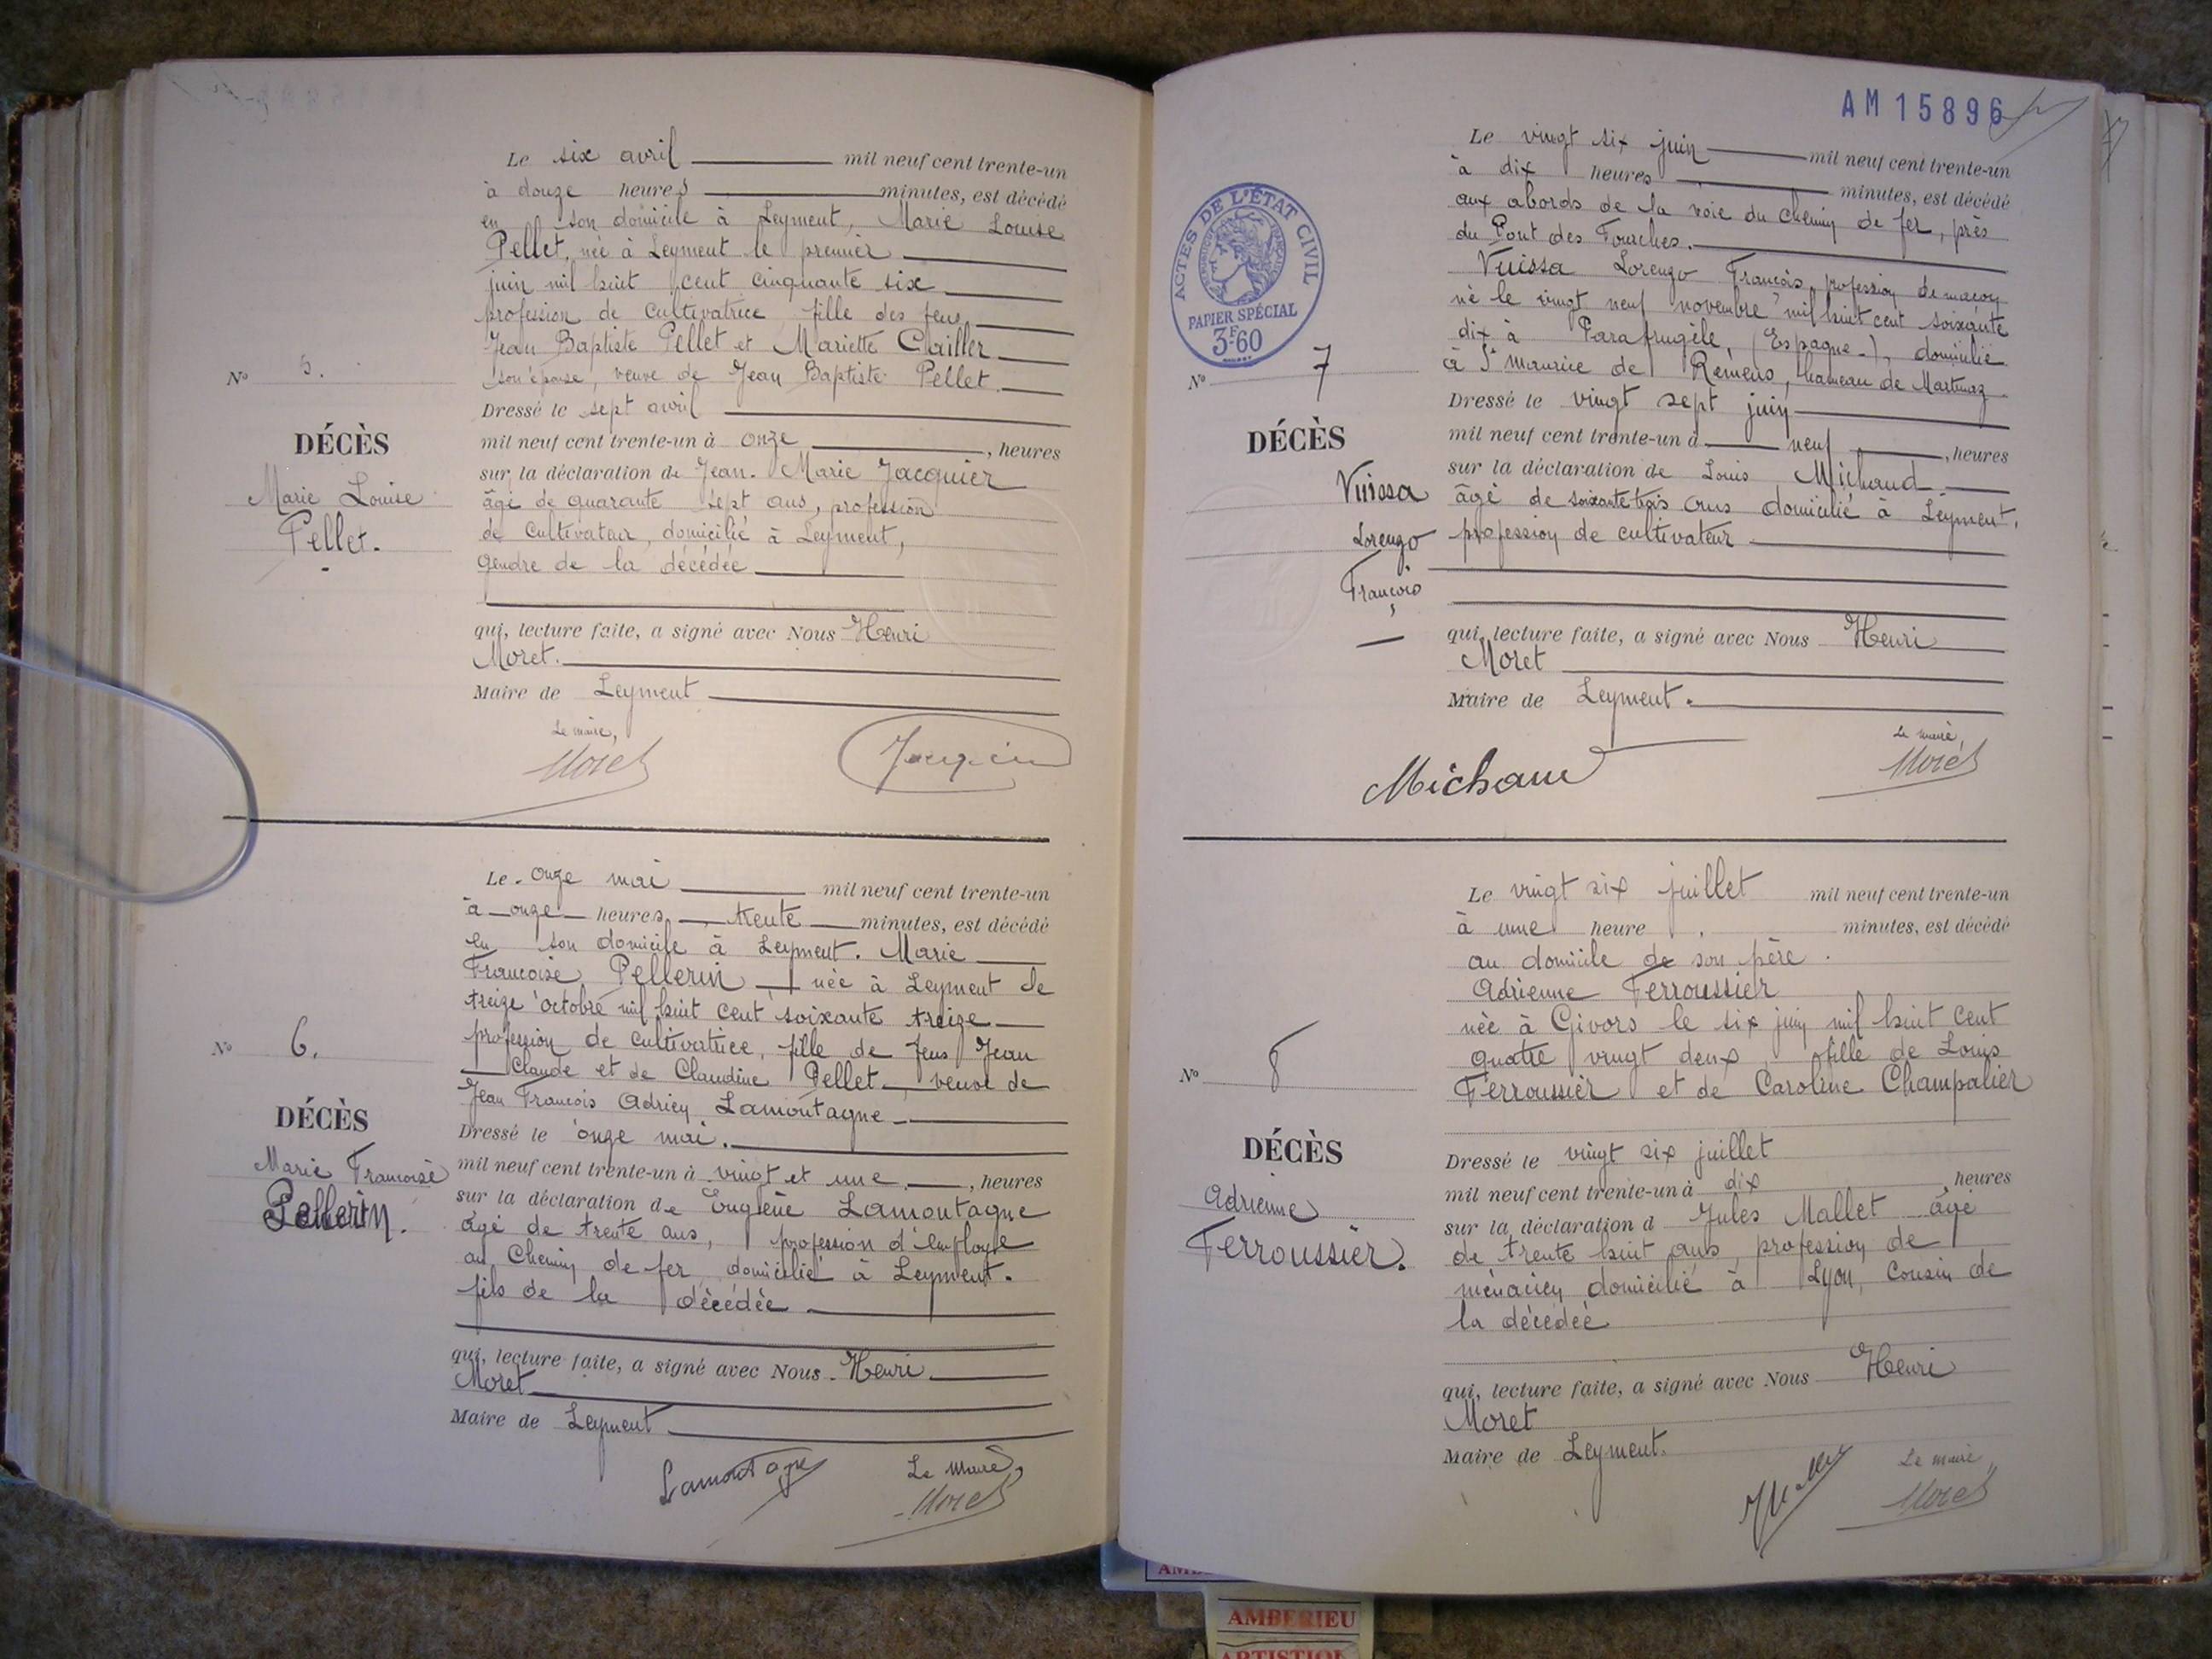 Le six avril mil neuf cent trente-un
à douze heures minutes, est décédé
en son domicile à Leyment, Marie Louise
Pellet, née à Leyment le premier
juin mil huit cent cinquante six
profession de cultivatrice fille des feus
Jean Baptiste Pellet et Mariette Cailler
son épouse, veuve de Jean Baptiste Pellet
Dressé le sept avril
mil neuf cent trente-un à onze, heures
sur la déclaration de Jean-Marie Jacquier
âgé de quarante sept ans, profession
de cultivateur, domicilié à Leyment,
gendre de la décédée
qui, lecture faite, a signé avec Nous Henri
Moret.
Maire de Leyment
Le maire,
Moret
Jacquier
N° 5.
DÉCÈS
Marie Louise
Pellet.
Le onze mai mil neuf cent trente-un
à onze heures, trente minutes, est décédé
en son domicile à Leyment. Marie
Francoise Pellerin née à Leyment le
treize octobre mil huit cent soixante treize
profession de cultivatrice, fille de feus Jean
Claude et de Claudine Pellet, veuve de
Jean Francois Adrien Lamontagne
Dressé le onze mai.
mil neuf cent trente-un à vingt et une, heures
sur la déclaration de Eugène Lamontagne
âgé de trente ans, profession d'employé
au Chemin de fer domicilié à Leyment.
fils de la décédée
qui, lecture faite, a signé avec Nous Henri
Moret
Maire de Leyment
Lamontagne
Le maire,
Moret
N° 6.
DÉCÈS
Marie Francoise
Pellerin.
AM 15896
Le vingt six juin mil neuf cent trente-un
à dix heures minutes, est décédé
aux abords de la voie du chemin de fer, près
du Pont des Fourches.
Vuissa Lorenzo François, profession de maçon
né le vingt neuf novembre mil huit cent soixante
dix à Parafrugèle, (Espagne), domicilié
à St Maurice de Rémens, hameau de Martinaz
Dressé le vingt sept juin
mil neuf cent trente-un à neuf, heures
sur la déclaration de Louis Michaud
âgé de soixante trois ans domicilié à Leyment,
profession de cultivateur
qui, lecture faite, a signé avec Nous Henri
Moret
Maire de Leyment.
Michaud
Le maire,
Moret
ACTES DE L'ÉTAT CIVIL
RÉPUBLIQUE FRANÇAISE
PAPIER SPÉCIAL
3F60
N° 7
DÉCÈS
Vuissa
Lorenzo
François
Le vingt six juillet mil neuf cent trente-un
à une heure minutes, est décédé
au domicile de son père.
Adrienne Ferroussier
née à Givors le six juin mil huit cent
quatre vingt deux, fille de Louis
Ferroussier et de Caroline Champalier
Dressé le vingt six juillet
mil neuf cent trente-un à dix, heures
sur la déclaration d Jules Mallet âgé
de trente huit ans, profession de
mécanicien domicilié à Lyon, Cousin de
la décédée
qui, lecture faite, a signé avec Nous Henri
Moret
Maire de Leyment.
Le maire,
Moret
N° 8
DÉCÈS
Adrienne
Ferroussier.
AMBERIEU